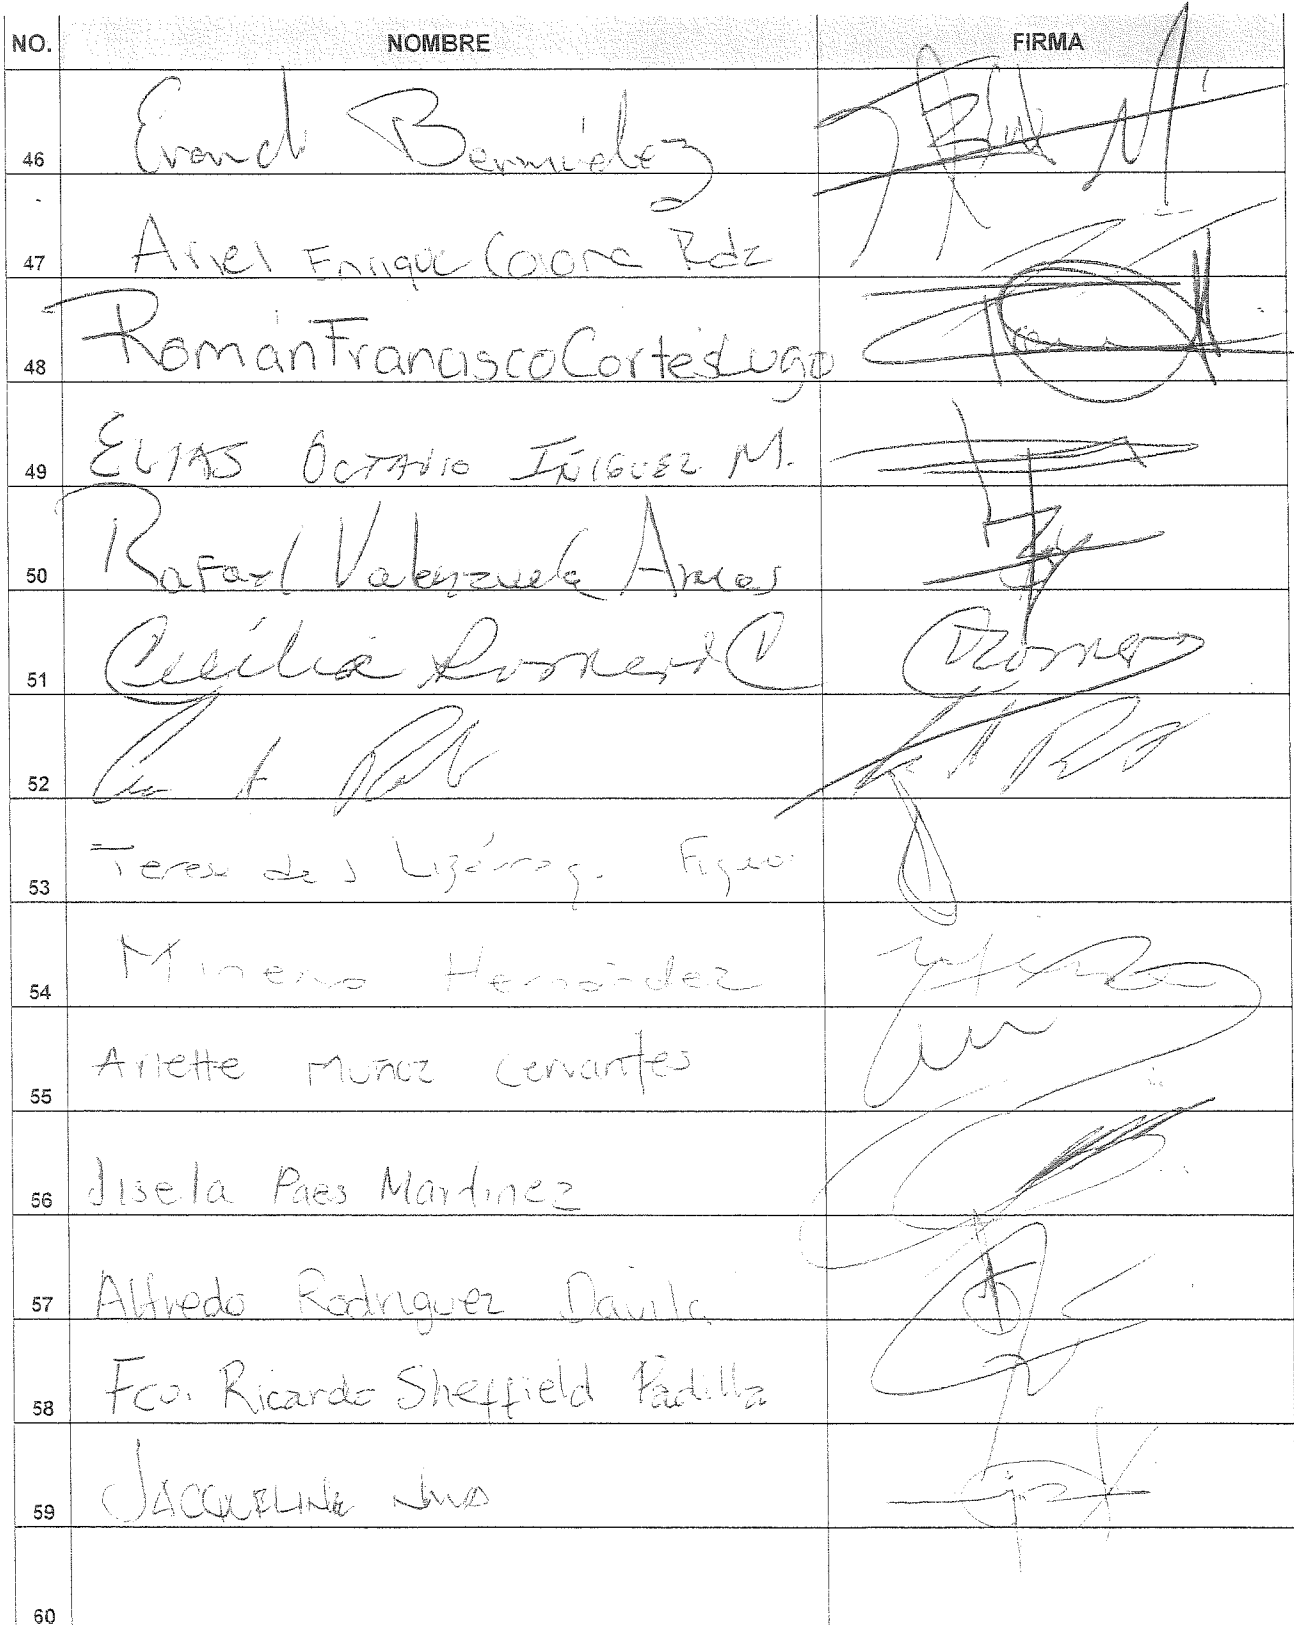 NO. NOMBRE FIRMA
46 Bermúdez
47 Ariel Enrique Corona Rdz
48 Román Francisco Cortés Lugo
49 ELIAS OCTAVIO IÑIGUEZ M.
50 Rafael Valenzuela Armas
51 Cecilia Romero C CRomero
52
53 Teresa de J Lizárrag. Figueo
54 Minerva Hernández
55 Arlette Muñoz Cervantes
56 Jisela Paes Martinez
57 Alfredo Rodriguez Davila
58 Fco. Ricardo Sheffield Padilla
59 JACQUELINE NAVA
60